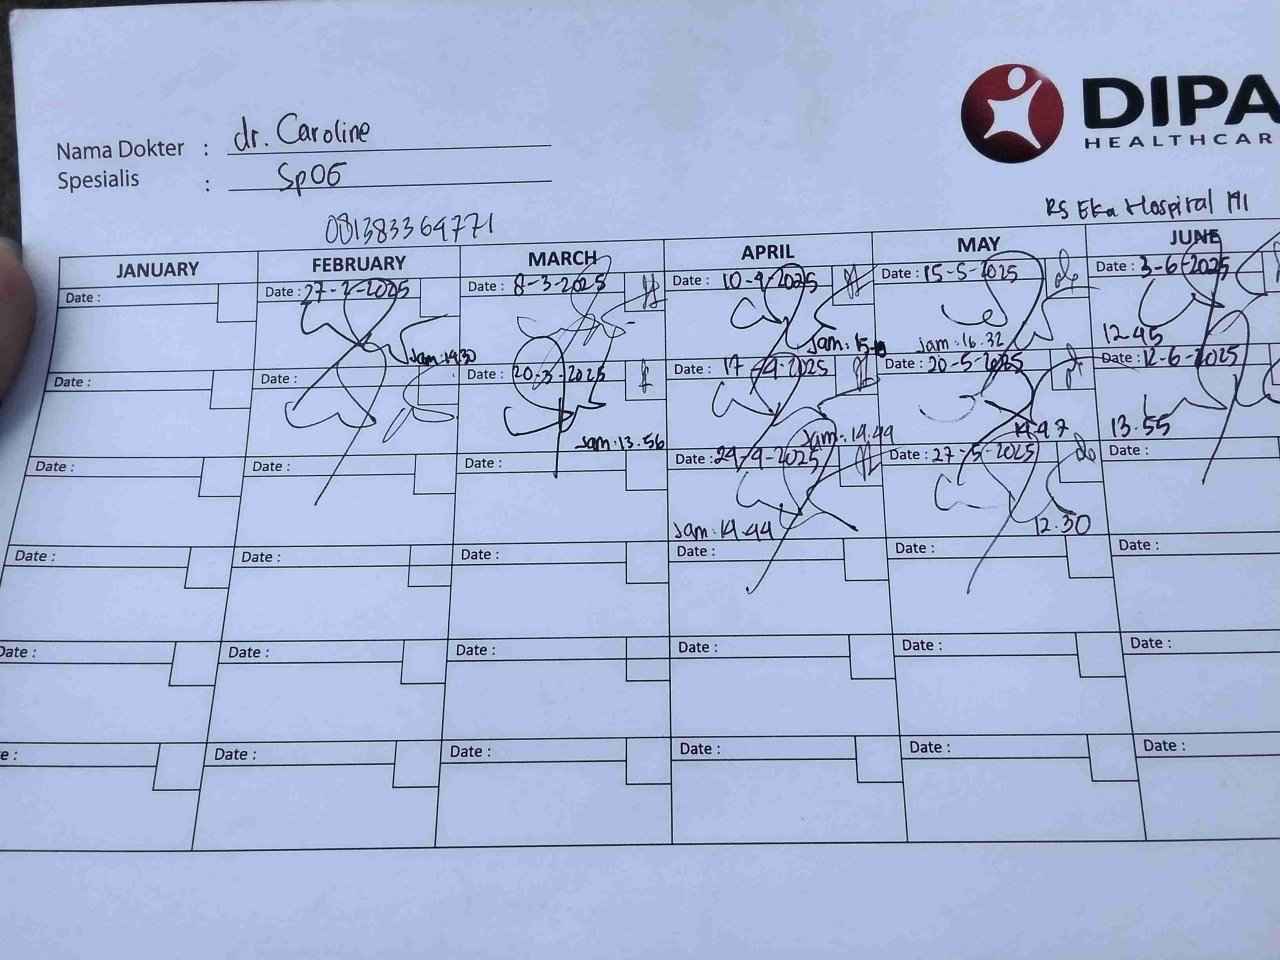 DIPA
HEALTHCAR
Nama Dokter : dr. Caroline
Spesialis : SpOG
081383369771
RS Eka Hospital
JANUARY FEBRUARY MARCH APRIL MAY JUNE
Date : Date : 27-2-2025 Date : 8-3-2025 Date : 10-4-2025 Date : 15-5-2025 Date : 3-6-2025
Jam: 14.30 Jam: 15. Jam: 16.32 12.45
Date : Date : Date : 20-3-2025 Date : 17-4-2025 Date : 20-5-2025 Date : 12-6-2025
Jam: 13.56 Jam: 14.44 14.47 13.55
Date : Date : Date : Date : 24-4-2025 Date : 27-5-2025 Date :
Jam: 14.44 12.30
Date : Date : Date : Date : Date : Date :
Date : Date : Date : Date : Date : Date :
e : Date : Date : Date : Date : Date :